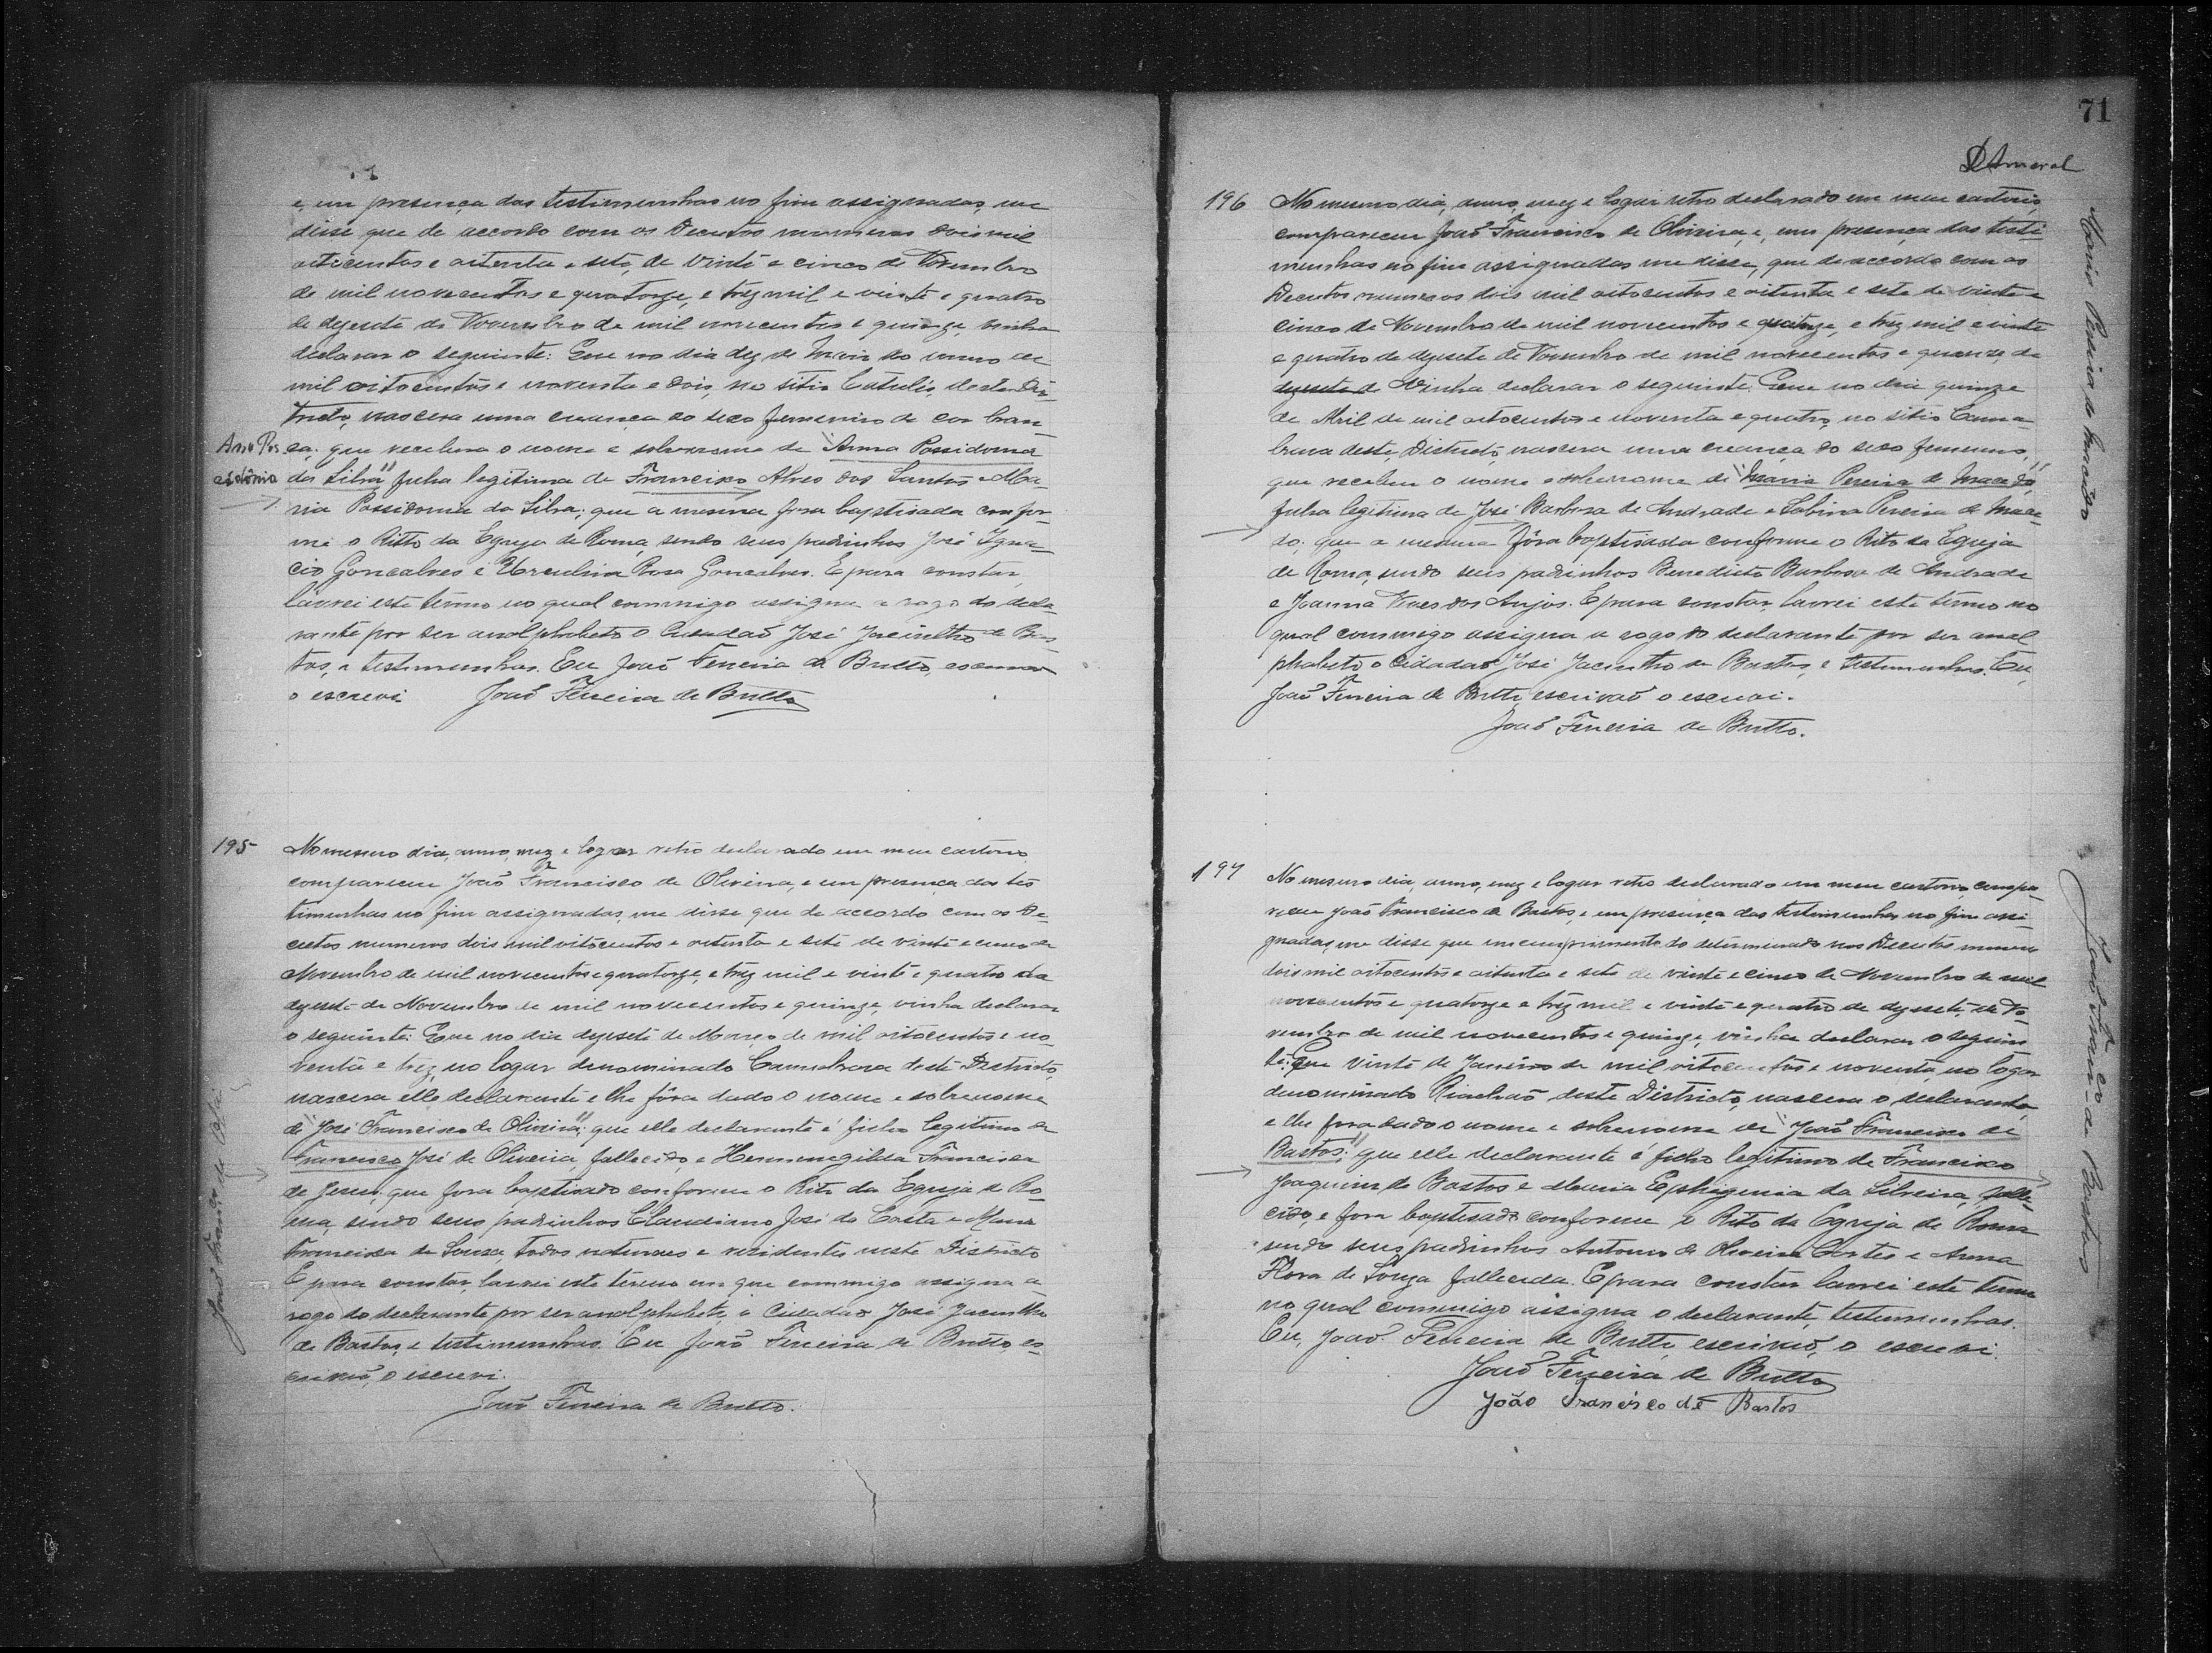 e, em presença das testimunhas no fim assignadas, me
disse que de accordo com os Decretos numeros dois mil
oitocentos e oitenta e sete, de vinte e cinco de Novembro
de mil novecentos e quatorze, e trez mil e vinte e quatro
de dezesete de Novembro de mil novecentos e quinze, vinha
declarar o seguinte: Que no dia dez de Maio do anno de
mil oitocentos e noventa e dois, no sitio Catulé, deste Dis-
tricto, nascera uma creança do sexo femenino de cor bran-
ca, que recebera o nome e sobrenome de "Anna Possidonia
da Silva" filha legitima de Francisco Alves dos Santos e Ma-
ria Possidonia da Silva; que a mesma fora baptisada confor-
me o Ritto da Egreja de Roma, sendo seus padrinhos José Igna-
cio Goncalves e Urculina Rosa Goncalves. E para constar,
lavrei este termo no qual commigo assigna a rogo do decla-
rante por ser analphabeto o Cidadaõ José Jacintho de Bas-
tos, e testimunhas. Eu Joaõ Ferreira de Britto, escrivaõ
o escrevi. Joaõ Ferreira de Britto
195 No mesmo dia, anno, mez e logar retro declarado em meu cartorio
compareceu Joaõ Francisco de Oliveira, e em presença das tes
timunhas no fim assignadas, me disse que de accordo com os De-
cretos numeros dois mil oitocentos e oitenta e sete de vinte e cinco de
Novembro de mil novecentos e quatorze, e trez mil e vinte e quatro de
dezesete de Novembro de mil novecentos e quinze, vinha declarar
o seguinte: Que no dia dezesete de Março de mil oitocentos e no-
venta e trez, no logar denominado deste Districto,
nascera elle declarante e lhe fôra dado o nome e sobrenome
de "José Francisco de Oliveira"; que elle declarante é filho legitimo de
Francisco José de Oliveira, fallecido, e Hermenegilda Francisca
de Jesus, que fora baptisado conforme o Rito da Egreja de Ro-
ma, sendo seus padrinhos Claudiano José da Costa e Maria
Francisca de Sousa, todos naturaes e rezidentes neste Districto
E para constar, lavrei este termo em que commigo assigna a
rogo do declarante por ser analphabeto, o Cidadaõ José Jacintho
de Bastos, e testimunhas. Eu Joaõ Ferreira de Britto, es-
crivaõ, o escrevi.
Joaõ Ferreira de Britto.
71
Amaral
196 No mesmo dia, anno, mez e logar retro declarado em meu cartorio,
compareceu Joaõ Francisco de Oliveira, e, em presença das testi
munhas no fim assignadas me disse, que de accordo com os
Decretos numeros dois mil oitocentos e oitenta e sete de vinte e
cinco de Novembro de mil novecentos e quatorze, e trez mil e vinte
e quatro de dezesete de Novembro de mil novecentos e quinze, de
dezesete de Vinha declarar o seguinte. Que no dia quinze
de Abril de mil oitocentos e noventa e quatro, no sitio Canna
brava deste, Districto, nascera uma creança do sexo femenino,
que recebeu o nome e sobrenome de "Maria Pereira de Macedo",
filha legitima de José Barbosa de Andrade e Sabina Pereira de Mace-
do; que a mesma fôra baptisada conforme o Rito da Egreja
de Roma, sendo seus padrinhos Benedicto Barbosa de Andrade
e Joanna dos Anjos. E para constar, lavrei este termo no
qual commigo assigna a rogo do declarante por ser anal
phabeto, o cidadaõ José Jacintho de Bastos, e testimunhas. Eu,
Joaõ Ferreira de Britto, escrivaõ o escrevi.
Joaõ Ferreira de Britto.
Maria Pereira de Macedo
197 No mesmo dia, anno, mez e logar retro declarado em meu cartorio, compa-
receu Joaõ Francisco de Bastos, e em presença das testimunhas no fim assi-
gnadas, me disse que em cumprimento do determinado nos Decretos numeros
dois mil oitocentos e oitenta e sete de vinte e cinco de Novembro de mil
novecentos e quatorze e trez mil e vinte e quatro de dezesete de No-
vembro de mil novecentos e quinze, vinha declarar o seguin
te: Que vinte de Janeiro de mil oitocentos e noventa, no logar
denominado Riachaõ deste Districto, nascera o declarante,
e lhe fora dado o nome e sobrenome de "Joaõ Francisco de
Bastos"; que elle declarante é filho legitimo de Francisco
Joaquim de Bastos e Maria Ephigenia da Silveira, falle-
cido, e fora baptisado conforme o Rito da Egreja de Roma
sendo seus padrinhos Antonio de Oliveira Cortes e Anna
Flora de Souza fallecida. E para constar lavrei este termo
no qual commigo assigna o declarante, testimunhas.
Eu, Joaõ Ferreira de Britto, escrivaõ, o escrevi.
Joaõ Ferreira de Britto
João Francisco de Bastos
Joaõ Franco de Bastos